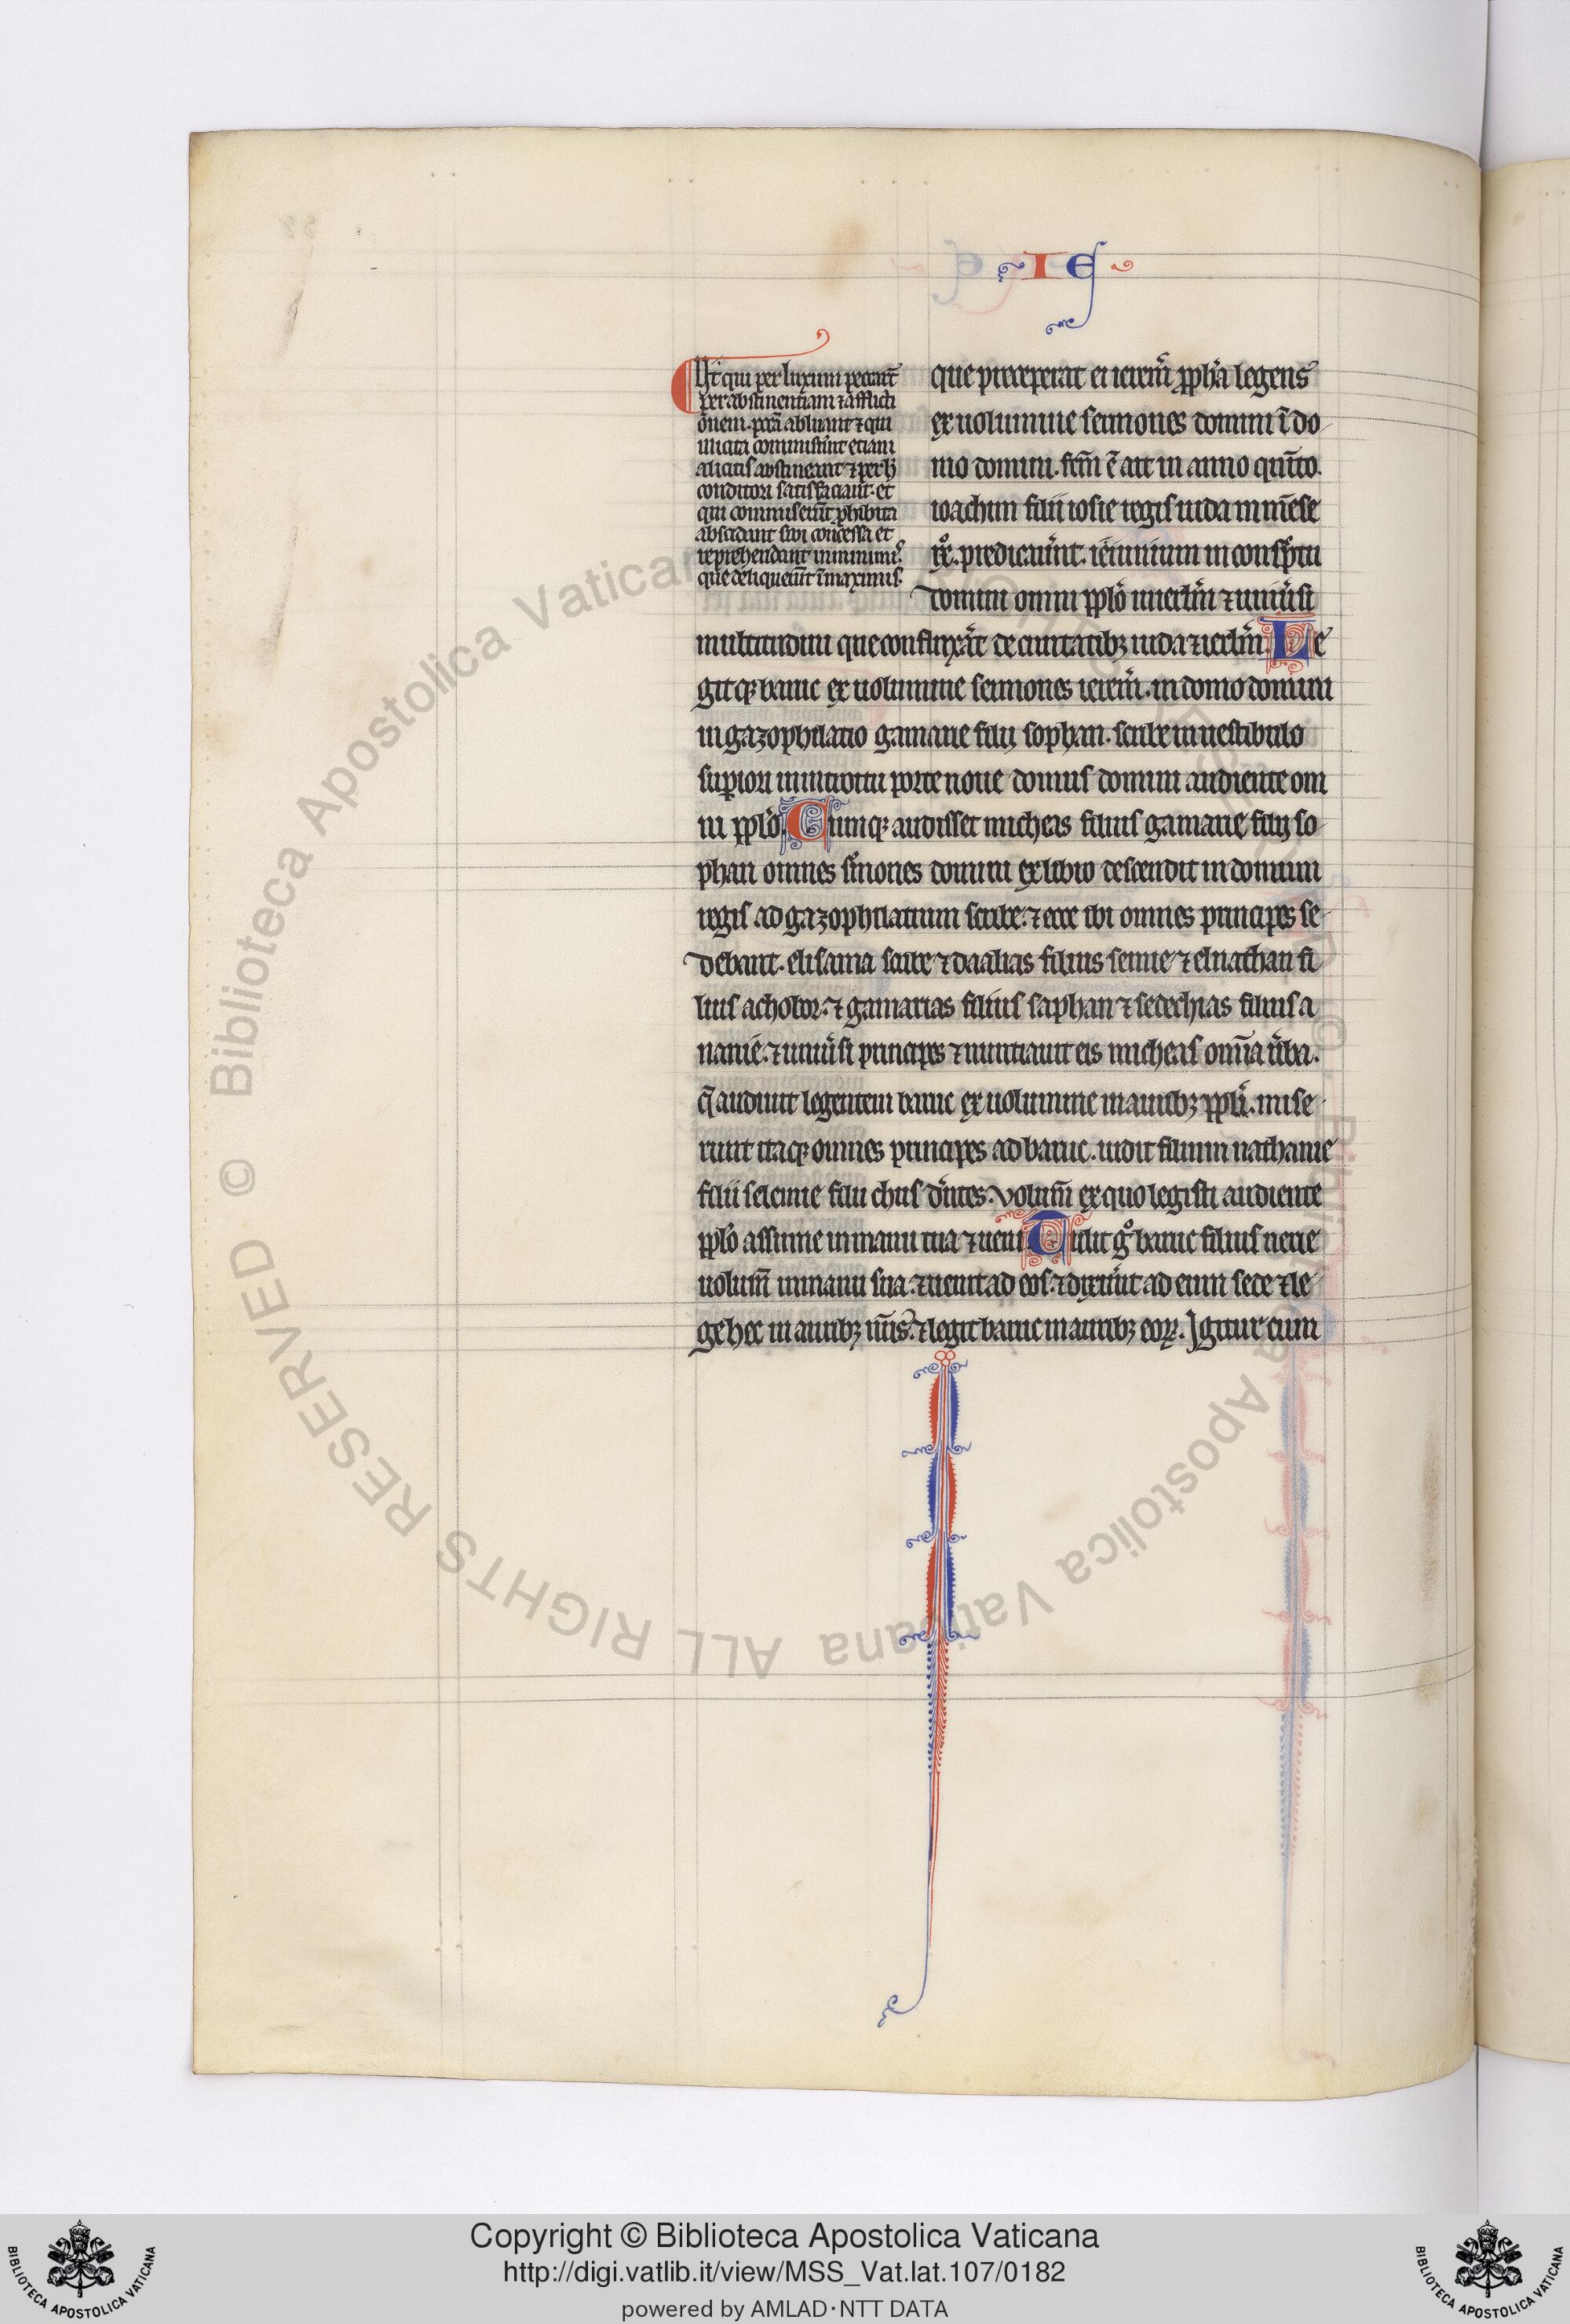 IE
Ut qui per luxum peccant̃
per abstinentiam ⁊ afflicti
onem. pctã abluant ⁊ qui
illicita commiser̃nt etiam
a licitis abstineant ⁊ per h̃
conditori satisfaciant. et
qui commiserũt ꝓhibita
abscidant sibi concessa et
reprehendant in minimis
que deliquerũt ĩ maximis.
que preceperat ei ierem̃ ꝓpha legens
ex uolumine sermones domini ĩ do
mo domini. fcm̃ ẽ aũt in anno quĩto
ioachim filii iosie regis iuda in mẽse
predicauer̃nt. ieiunium in conspc̃tu
domini omni ppło in ierłm ⁊ uniũse
multitudini que confluxer̃at de ciuitatibꝫ iuda ⁊ ierłm. Le
gitqꝫ baruc ex uolumine sermones ierem̃. in domo domini
in gazophilatio gamarie filij sophan. scribe in uestibulo
supiori in introitu porte noue domus domini audiente om
ni ppło Cumqꝫ audisset micheas filius gamarie filij so
phan omnes sr̃mones domini ex libro descendit in domum
regis ad gazophilatium scribe. ⁊ ecce ibi omnes principes se
debant. elisama scribe ⁊ daalias filius semie ⁊ elnathan fi
lius achobor. ⁊ gamarias filius saphan ⁊ sedechias filius a
nanie. ⁊ uniũsi principes ⁊ nuntiauit eis micheas omĩa ũba.
q̃ audiuit legentem baruc ex uolumine in auribꝫ ppłi. mise
runt itaqꝫ omnes principes ad baruc. iudit filium nathanie
filii selemie filii chusi dĩntes. volum̃ ex quo legisti audiente
ppło assume in manu tua ⁊ ueni Tulit g̊ baruc filius nerie
uolum̃ in manu sua. ⁊ uenit ad eos. ⁊ dixer̃ut ad eum sede ⁊ le
ge hec in auribꝫ nr̃is. ⁊ legit baruc in auribꝫ eoꝝ. Igitur cum
Copyright © Biblioteca Apostolica Vaticana
http://digi.vatlib.it/view/MSS_Vat.lat.107/0182
powered by AMLAD·NTT DATA
BIBLIOTECA APOSTOLICA VATICANA
BIBLIOTECA APOSTOLICA VATICANA
© Biblioteca Apostolica Vaticana ALL RIGHTS RESERVED